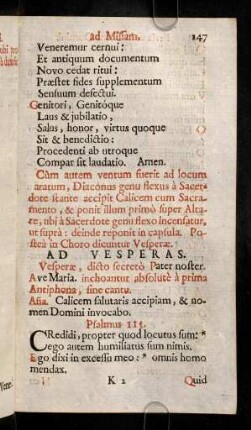 ad Missam. 147
Veneremur cernui:
Et antiquum documentum
Novo cedat ritui:
Præstet fides supplementum
Sensuum defectui.
Genitori, Genitóque
Laus & jubilatio,
Salus, honor, virtus quoque
Sit & benedictio:
Procedenti ab utroque
Compar sit laudatio. Amen.
Cùm autem ventum fuerit ad locum
aratum, Diaconus genu flexus à Sacer-
dote stante accipit Calicem cum Sacra-
mento, & ponit illum primò super Alta-
re, ubi à Sacerdote genu flexo incensatur,
ut suprà: deinde reponit in capsula. Po-
steà in Choro dicuntur Vesperæ.
AD VESPERAS.
Vesperæ, dicto secretò Pater noster.
Ave Maria. inchoantur absolutè à prima
Antiphona, sine cantu.
Aña. Calicem salutaris accipiam, & no-
men Domini invocabo.
Psalmus 115.
CRedidi, propter quod locutus sum: *
ego autem humiliatus sum nimis.
Ego dixi in excessu meo: * omnis homo
mendax.
K 2 Quid